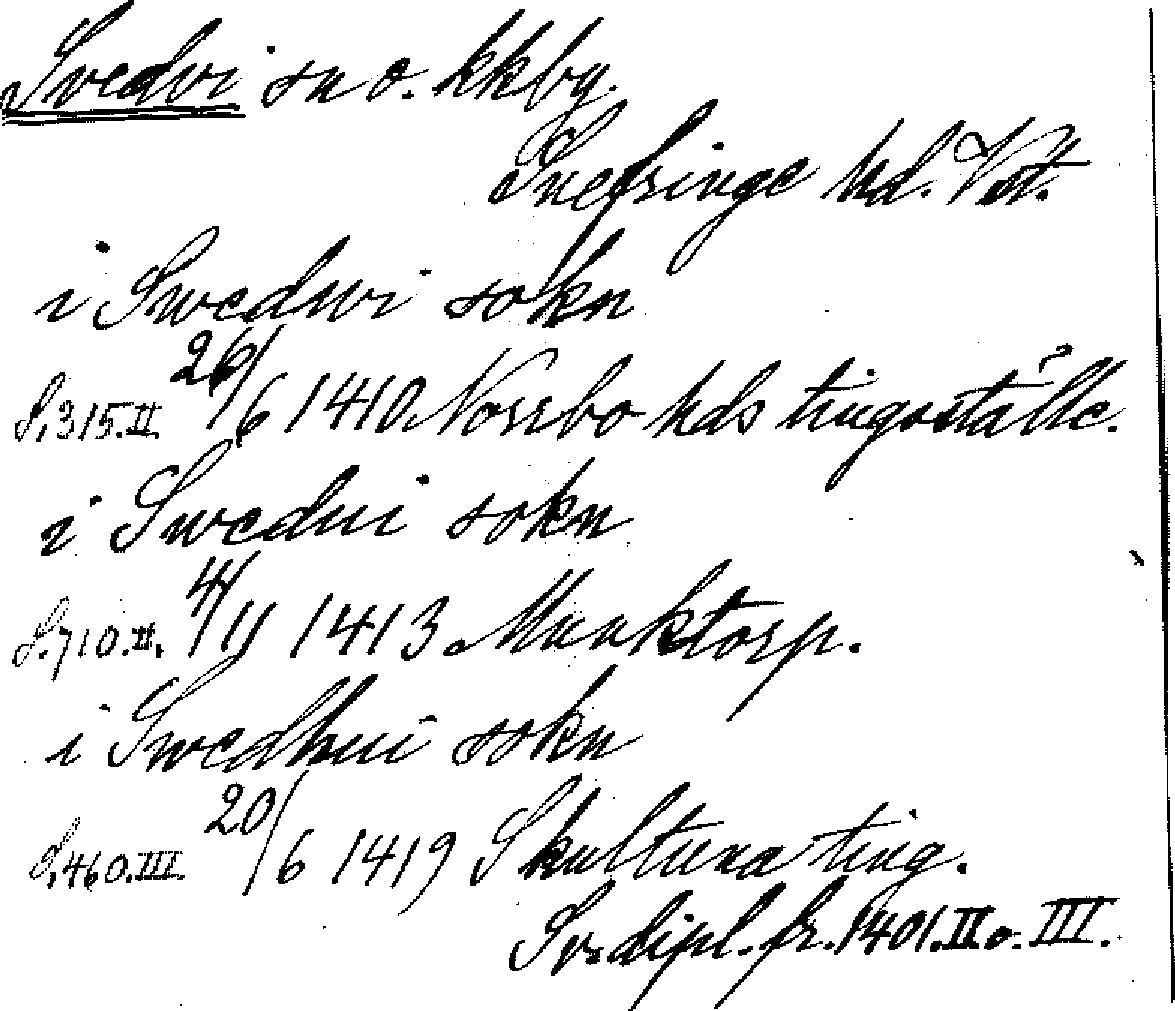 Svedvi sn o. kkby.
Snefringe hd. Vst.
i Swedwi sokn
S. 315. II. 26/6 1410 Norrbo hds tingställe.
i Swedui sokn
S. 710. II. 4/11 1413 Munktorp.
i Swedhui sokn
S. 460. III. 20/6 1419 Skultuna ting.
Sv. dipl. fr. 1401. II o. III.